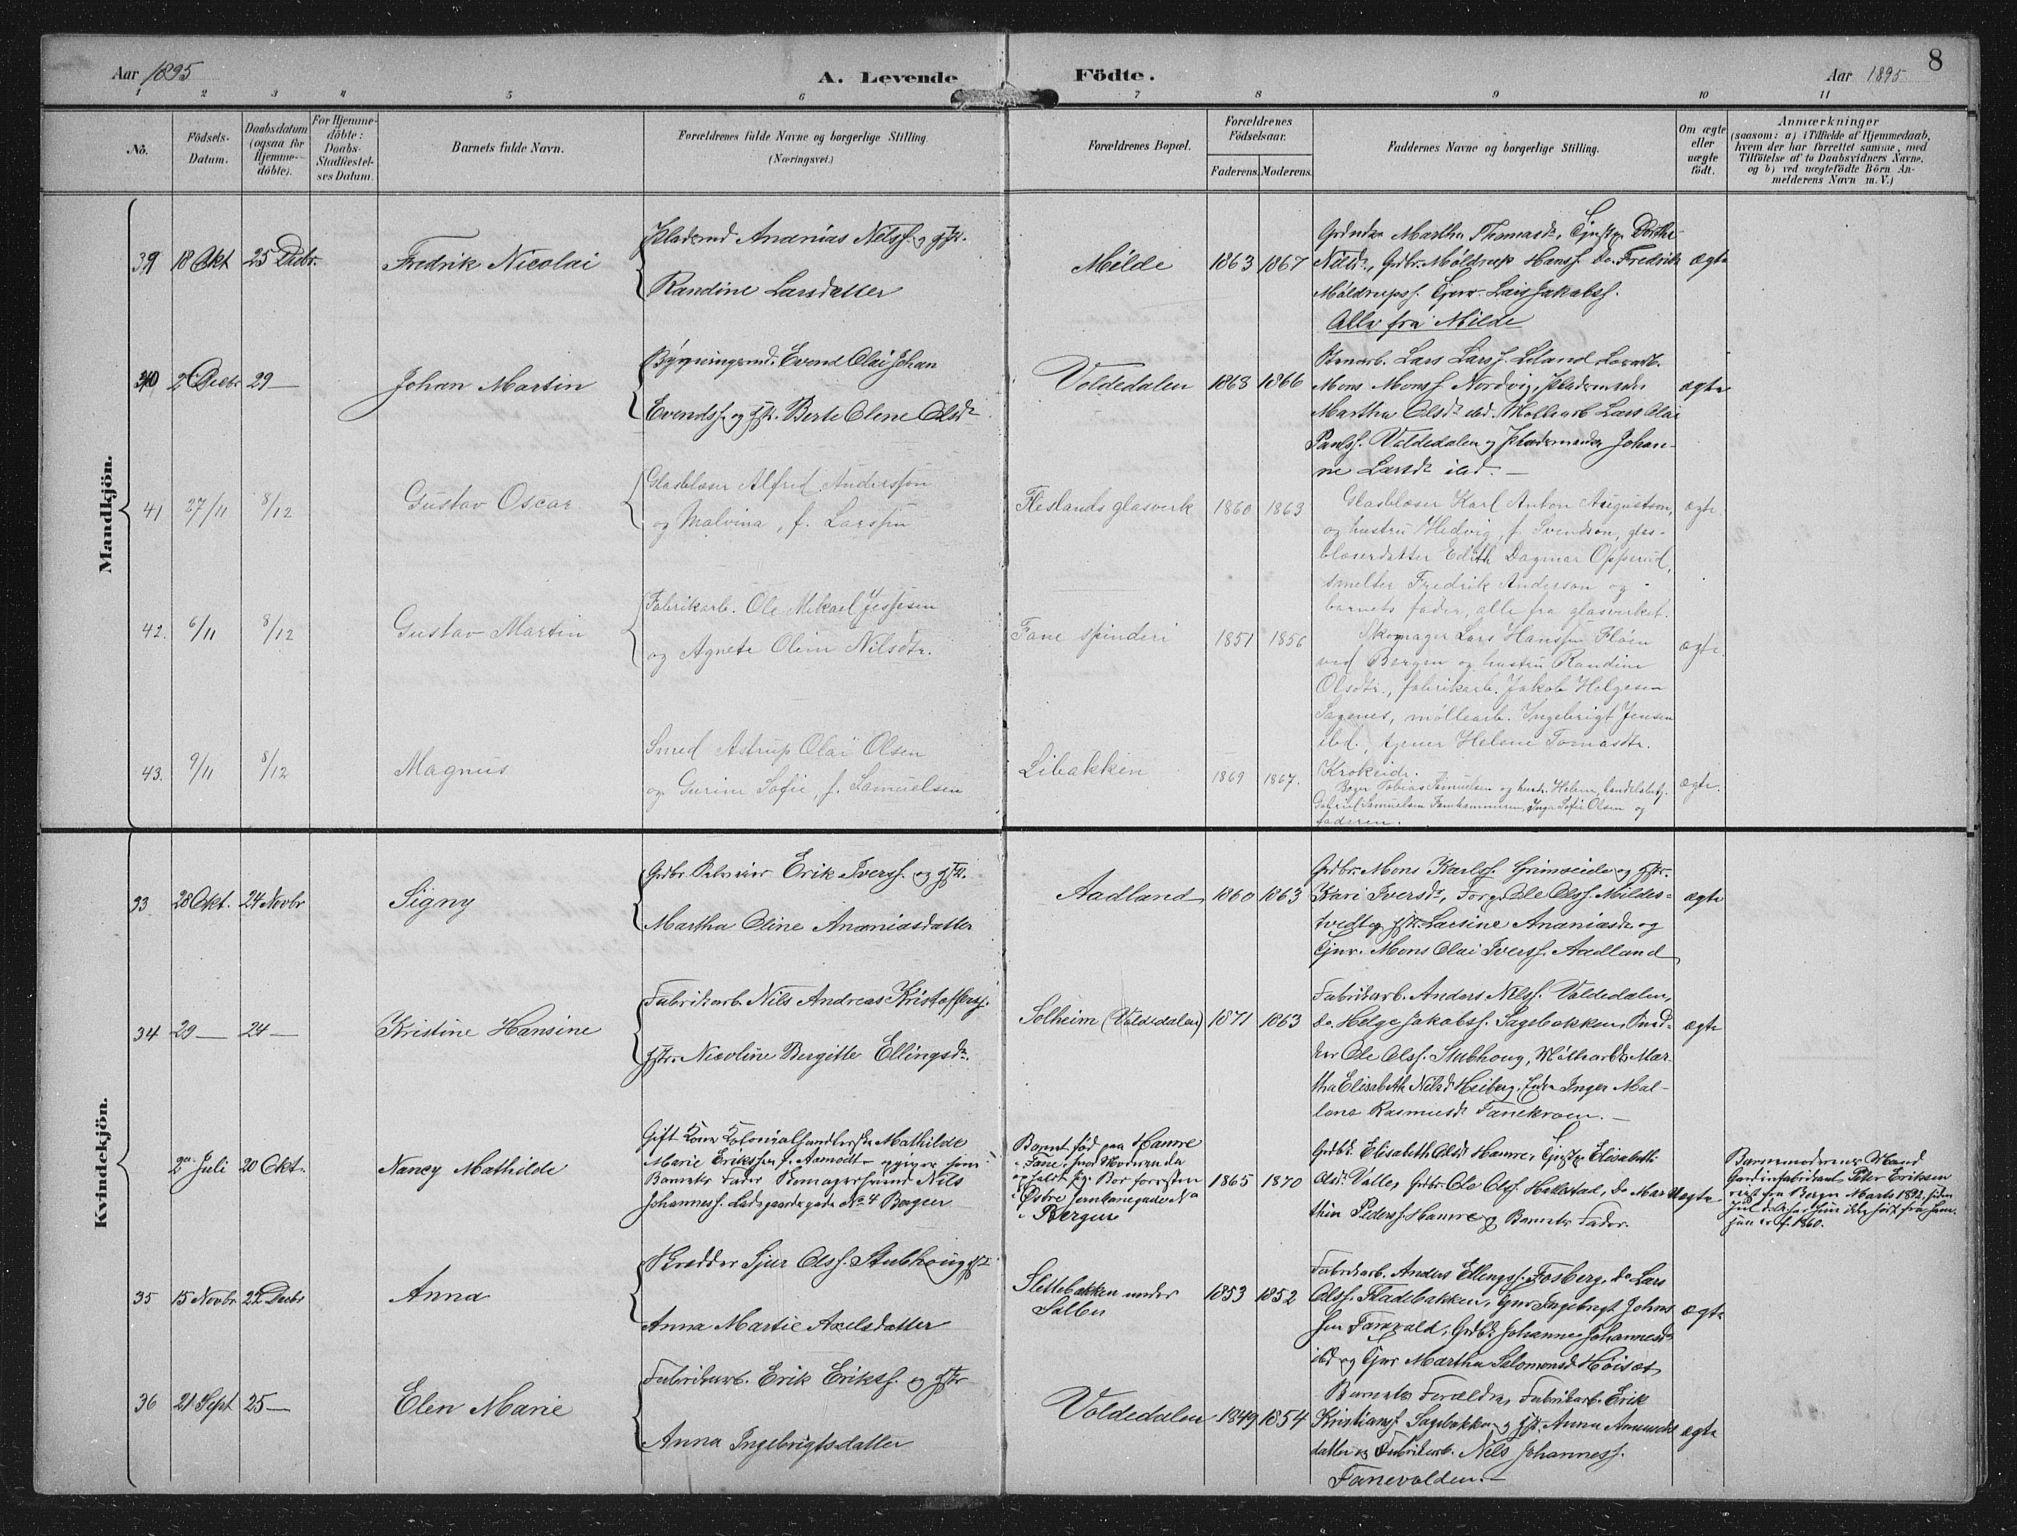 Aar 1895
A. Levende Födte.
Aar 1895
8
1 2 3 4 5 6 7 8 9 10 11
No.
Födsels-
Datum.
Daabsdatum
(ogsaa for
Hjemme-
döbte).
For Hjemme-
döbte:
Daabs-
Stadfæstel-
ses Datum.
Barnets fulde Navn.
Forældrenes fulde Navne og borgerlige Stilling.
(Næringsvei.)
Forældrenes Bopæl.
Forældrenes
Födselsaar.
Faderens. Moderens.
Faddernes Navne og borgerlige Stilling.
Om ægte
eller
uægte
födt.
Anmærkninger
(saasom: a) i Tilfælde af Hjemmedaab,
hvem der har forrettet samme, med
Tilföielse af to Daabsvidners Navne,
og b) ved uægtefödte Börn An-
melderens Navn m. V.)
Mandkjön.
39 18 Okt 25 Decbr.
Fredrik Nicolai
Pladsmd Ananias Nelsf. og Hstr.
Randine Larsdatter
Milde
1863 1867
Martha Thomasdr, Dorthe
Nilsdr, Grdbr. Möldrup Hansf. do. Fredrik
Möldrupsf. Lars Jakobsf.
Alle fra Milde
ægte
40 2 Decbr 29 —
Johan Martin
Bygningsmd. Evend Olai Johan
Evendsf. og Hstr. Berte Olene Olsdr
Voldedalen
1868 1866
Lars Larsf. Liland
Mons Monsf Nordvig,
Martha Olsdr ibd. Möllearb Lars Olai
Paulsf. Voldedalen og Johan-
ne Larsdr ibd. —
ægte
41 27/11 8/12
Gustav Oscar
Glasblæser Alfred Anderssön
og Malvina, f. Larssen
Fleslands glasverk
1860 1863
Glasblæser Karl Anton Augustson,
og hustru Hedvig, f. Svendsen, glas-
blæserdatter Edith Dagmar Opperud,
smelter Fredrik Anderson og
barnets fader, alle fra glasverket.
ægte
42. 6/11 8/12
Gustav Martin
Fabrikarb. Ole Mikael Jessesen
og Agnete Oline Nilsdtr.
Fane spinderi
1851 1856
Skomager Lars Hanssen Fløen
ved Bergen og hustru Randine
Olsdtr., fabrikarb. Jakob Helgesen
Sagenes, møllearb. Ingebrigt Jensen
ibd., tjener Helene Tomasdtr.
Krokeide.
ægte.
43. 9/11 8/12
Magnus
Smed Astrup Olai Olsen
og Gurine Sofie, f. Samuelsen
Libakken
1869 1867.
Tobias Samuelsen og hustr. Helene, handelsbetj.
Gabriel Samuelsen Fanehammeren, Inga Sofie Olsen og
faderen.
ægte.
Kvindekjön.
33 20 Okt. 24 Novbr
Signy
Grdbr. Erik Iversf. og Hstr.
Martha Oline Ananiasdatter
Aadland
1860 1863
Grdbr. Mons Karlsf. Grimseide og Hstr.
Kari Iversdr, Forp. Ole Olsf. Mildes-
tvedt og Hstr. Larsine Ananiasdr og
Mons Olai Iversf. Aadland
ægte
34 29 — 24 —
Kristine Hansine
Fabrikarb. Nils Andreas Kristoffersf.
Hstr. Nicoline Bergitte Ellingsdr.
Solheim (Voldedalen)
1871 1863
Fabrikarb. Anders Nelsf. Voldedalen,
do. Helge Jakobsf. Sagebakken,
Ole Olsf. Stubhoug, Mar-
tha Elisabeth Nilsdr Heiberg, Inger Mal-
lene Rasmusdr Fanekroen. —
ægte
2den Juli 20 Okt.
Nancy Mathilde
Gift Kone Kolonialhandlerske Mathilde
Marie Erikssen f. Aamodt opgiver som
Barnets Fader Nils
Johannesf. Ladegaardsgade No 4 Bergen
Barnet fød paa Hamre
i Fane, hvor Moderen da
Bor forresten
i Øvre No
i Bergen
1865 1870
Grdbr. Elisabeth Olsdr Hamre, Elisabeth
Olsdr Valle, Grdbr. Ole Olsf. Hakestad, do Mar-
thin Pedersf. Hamre og Barnets Fader.
uægte
Barnemoderens Mand
Gardinfabrikant Peter Eriksen
reist fra Bergen Marts 1892, siden
Jul. har hun ikke hørt fra ham.
Hun er f. 1860.
35 15 Novbr 22 Decbr
Anna
Skrædder Sjur Olsf. Stubhoug Hstr
Anna Martie Axelsdatter
Slettebakken under
1853 1852
Fabrikarb. Anders Ellingsf. Fosberg, do Lars
Olsf. Fladebakken, Ingebrigt Johns
sen Fanevold, Grdbr. Johanne Johannesdr
ibd og Martha Salomonsdr Høisæt
ægte
36 21 Sept 25 —
Elen Marie
Fabrikarb. Erik Eriksf. og Hstr
Anna Ingebrigtsdatter
Voldedalen
1849 1854
Barnets Forældre, Fabrikarb. Erik
Kristiansf. Sagebakken og Hstr. Anna
datter og Fabrikarb. Nils Johannesf.
Fanevolden. —
ægte